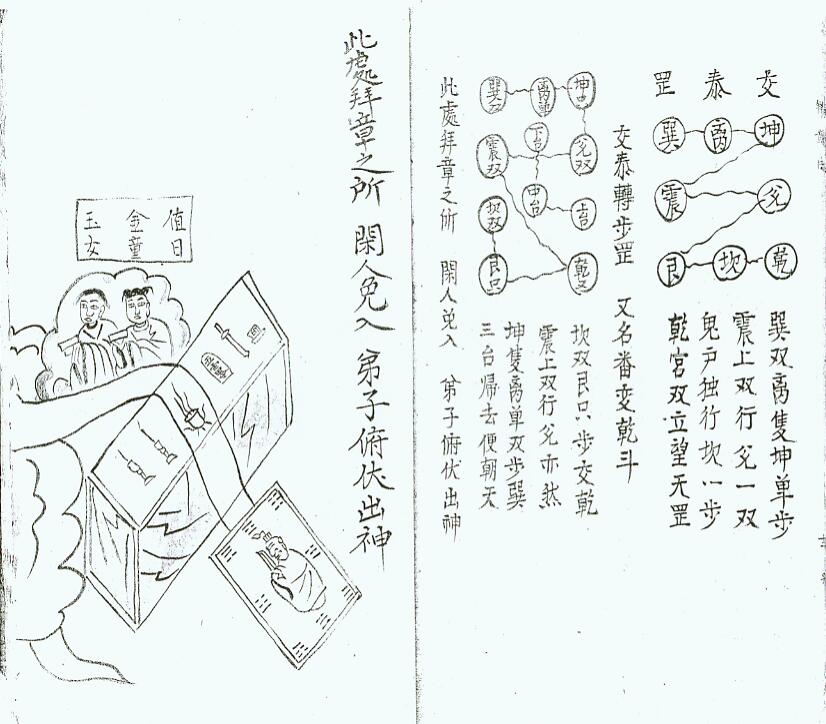 交泰罡
坤 离 巽
兑 震
乾 坎 艮
巽双离隻坤单步
震上双行兑一双
鬼户独行坎一步
乾宫双立望天罡
交泰轉步罡 又名番变乾斗
离单 巽双
兑双 下台 震双
上台 中台 坎双
艮只
坎双艮只步交乾
震上双行兑亦然
坤隻离单双步巽
三台帰去便朝天
此處拜章之所 閑人免入 弟子俯伏出神
此處拜章之所 閑人免入 弟子俯伏出神
值日
金童
玉女